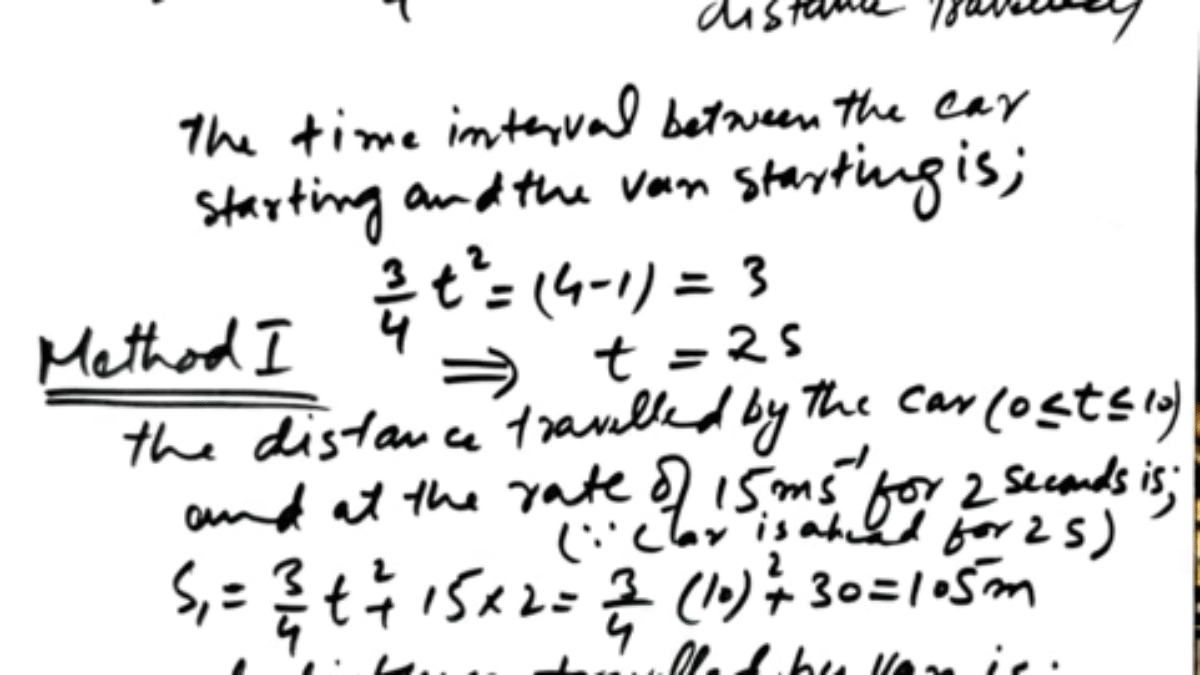 distance
The time interval between the car
starting and the van starting is;
3/4 t² = (4-1) = 3
Method I ⇒ t = 2 s
the distance travelled by the car (0≤t≤10)
and at the rate of 15 ms⁻¹ for 2 seconds is;
(∵ Car is ahead for 2 s)
S₁ = 3/4 t² + 15×2 = 3/4 (10)² + 30 = 105 m
travelled by Van is: